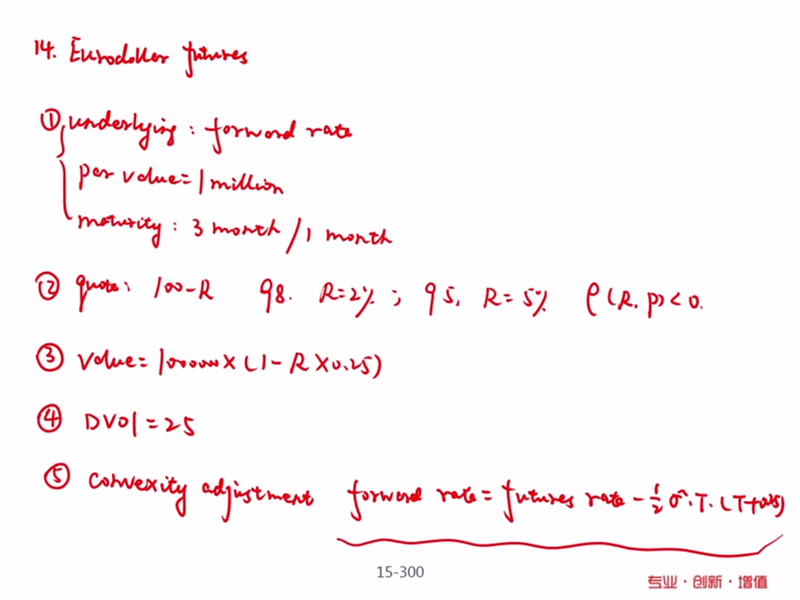 14. Eurodollar futures
① underlying : forward rate
par value = 1 million
maturity : 3 month / 1 month
② quote : 100-R 98. R=2% ; 95, R=5% ρ(R, P)<0.
③ value = 1000000 × (1 - R × 0.25)
④ DV01 = 25
⑤ convexity adjustment forward rate = futures rate - ½ σ². T. (T+0.25)
15-300
专业·创新·增值